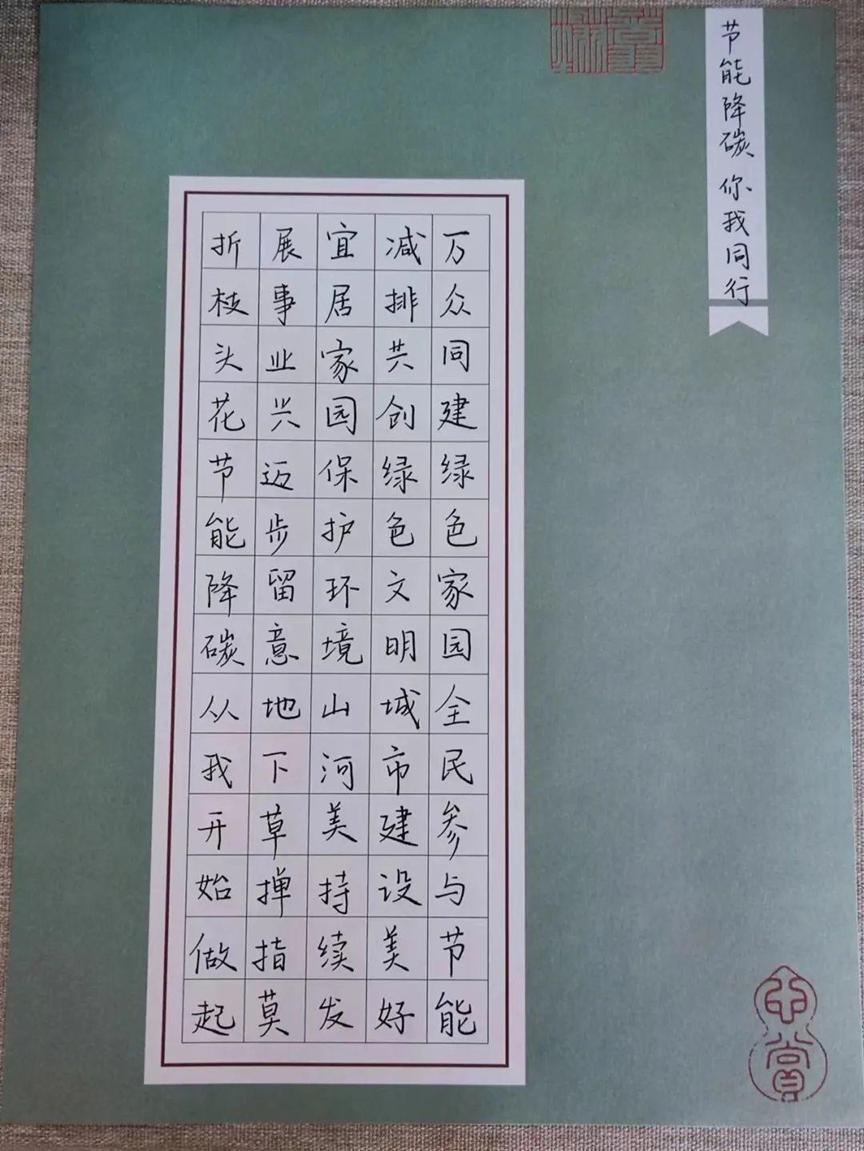 节能降碳 你我同行
万众同建绿色家园全民参与节能
减排共创绿色文明城市建设美好
宜居家园保护环境山河美持续发
展事业兴迈步留意地下草掸指莫
折枝头花节能降碳从我开始做起